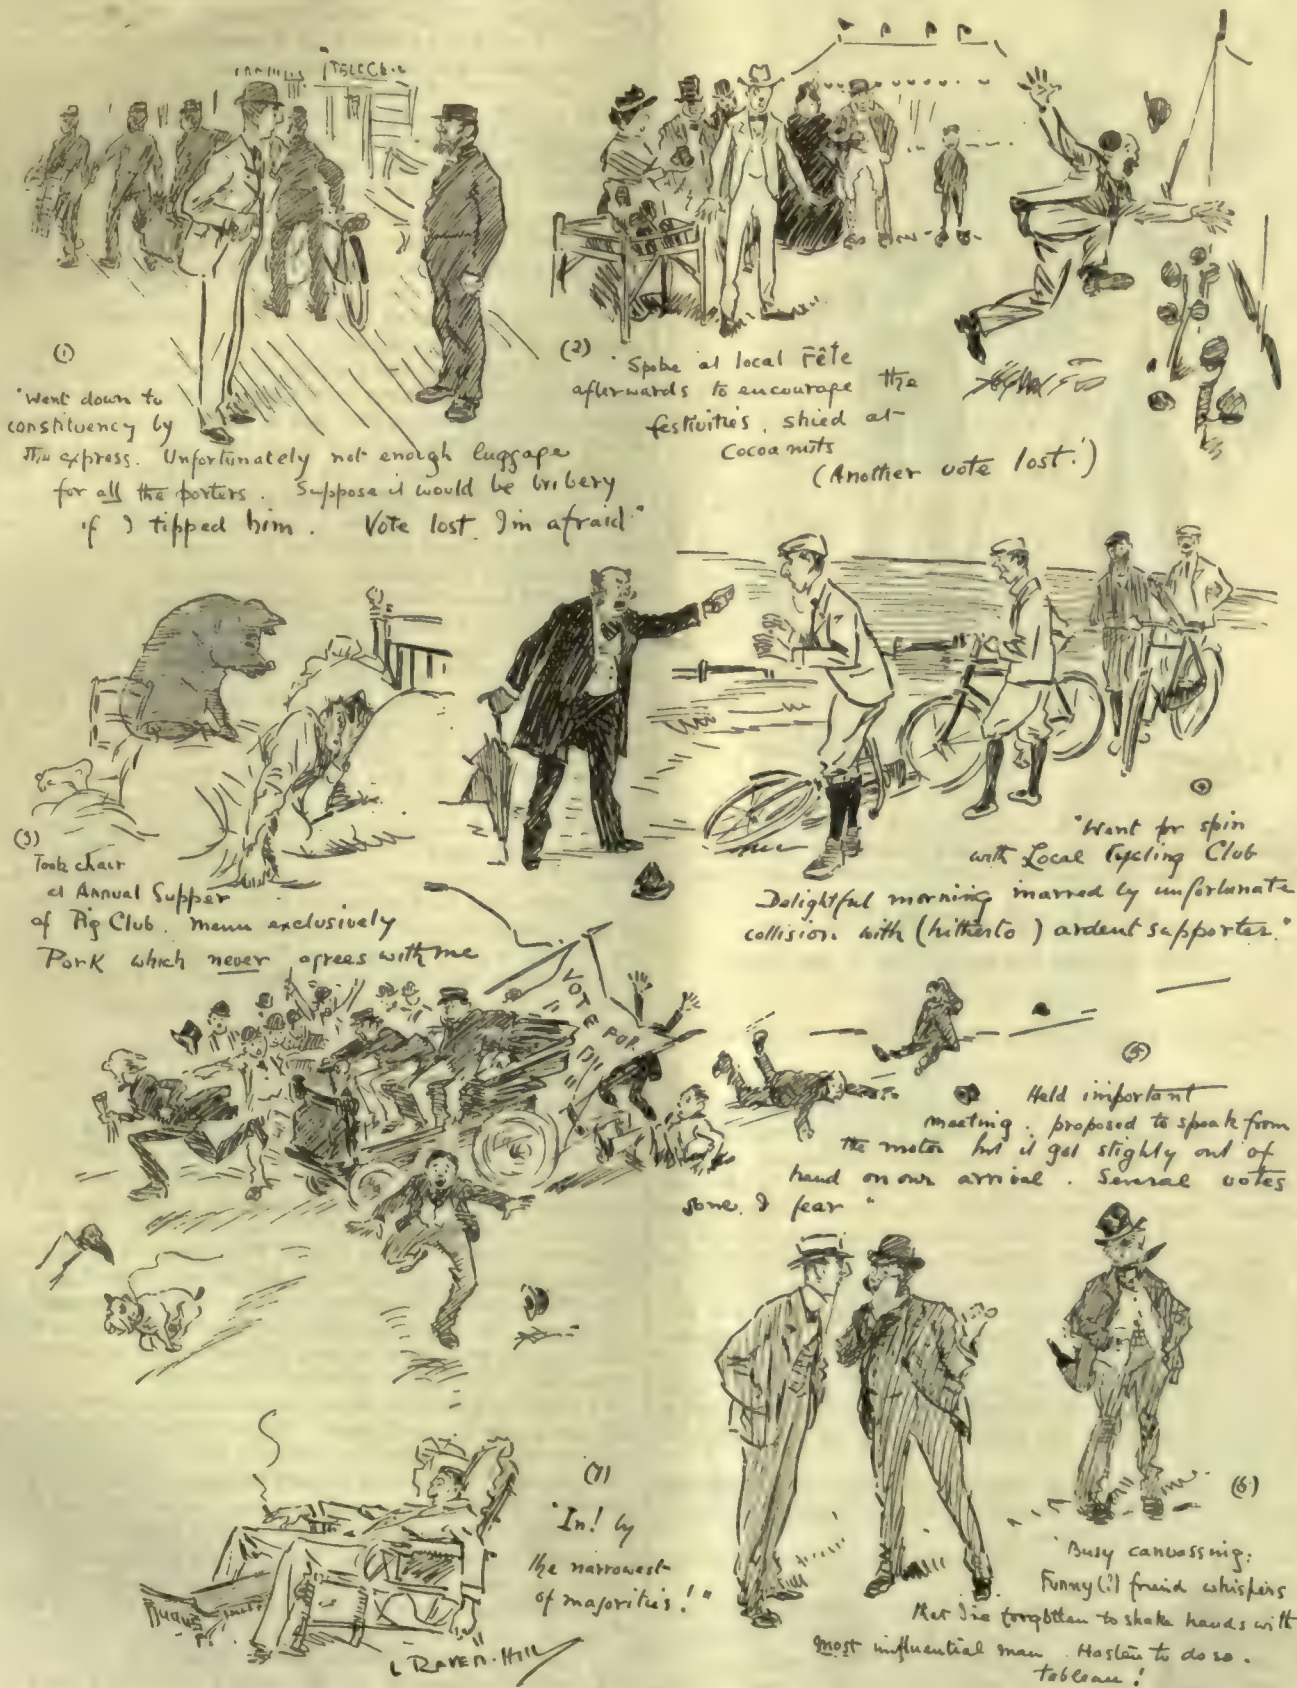 (1)
"Went down to
constituency by
express. Unfortunately not enough luggage
for all the porters. Suppose it would be bribery
if I tipped him. Vote lost, I'm afraid"
(2) "Spoke at local Fête
afterwards to encourage the
festivities, shied at
Cocoa nuts
(Another vote lost!)
(3)
Took chair
at Annual Supper
of Pig Club. Menu exclusively
Pork which never agrees with me
(4)
"Went for spin
with Local Cycling Club
Delightful morning marred by unfortunate
collision with (hitherto) ardent supporter."
VOTE FOR
(5)
Held important
meeting. proposed to speak from
the motor but it got slightly out of
hand on our arrival. Several votes
gone, I fear"
(6)
"Busy canvassing.
Funny(?) friend whispers
that I've forgotten to shake hands with
most influential man. Hasten to do so.
Tableau!
(7)
"In! by
the narrowest
of majorities!"
L RAVEN-HILL